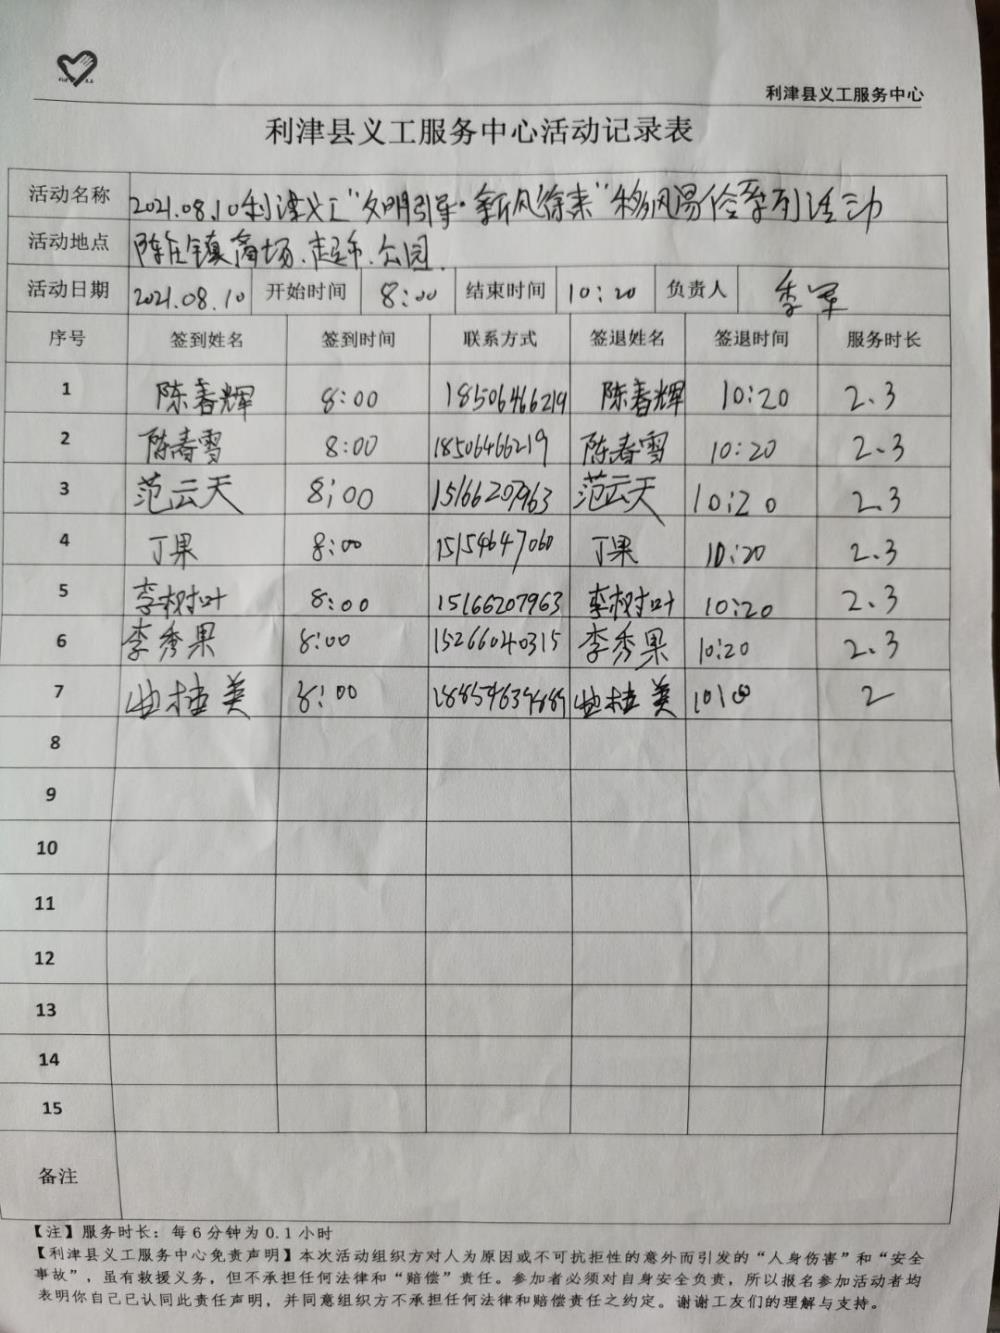 利津县义工服务中心
利津县义工服务中心活动记录表
活动名称 2021.08.10利津义工“文明引导·新风徐来”移风易俗系列活动
活动地点 陈庄镇商场、超市、公园
活动日期 2021.08.10 开始时间 8:00 结束时间 10:20 负责人 李军
序号 签到姓名 签到时间 联系方式 签退姓名 签退时间 服务时长
1 陈春辉 8:00 18506466219 陈春辉 10:20 2.3
2 陈春雪 8:00 18506466219 陈春雪 10:20 2.3
3 范云天 8:00 15166207963 范云天 10:20 2.3
4 丁果 8:00 15154647060 丁果 10:20 2.3
5 李树叶 8:00 15166207963 李树叶 10:20 2.3
6 李秀果 8:00 15266040315 李秀果 10:20 2.3
7 曲桂美 8:00 曲桂美 2
8
9
10
11
12
13
14
15
备注
【注】服务时长：每6分钟为0.1小时
【利津县义工服务中心免责声明】本次活动组织方对人为原因或不可抗拒性的意外而引发的“人身伤害”和“安全
事故”，虽有救援义务，但不承担任何法律和“赔偿”责任。参加者必须对自身安全负责，所以报名参加活动者均
表明你自己已认同此责任声明，并同意组织方不承担任何法律和赔偿责任之约定。谢谢工友们的理解与支持。